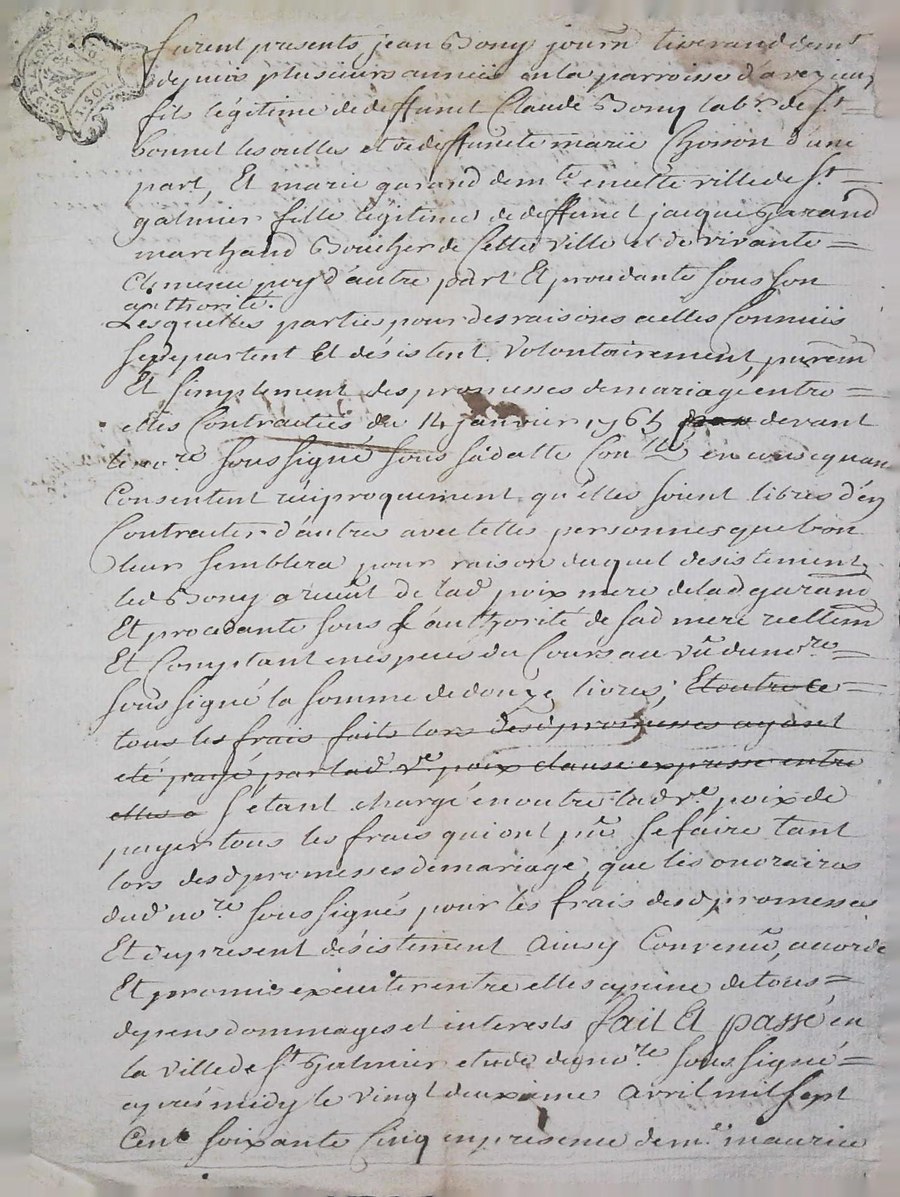 furent presents jean Bony journ tixerand demt
depuis plusieurs années en la parroisse d'aveizieu,
fils légitime de deffunct Claude Bony labr. de St
bonnet les oulles et de deffuncte marie Choison d'une
part, Et marie garand demte en cette ville de St
galmier fille légitime de deffunct jacque garand
marchand Boucher de Cette ville et de vivante
Clemence poy d'autre part Et procdante sous son
authorité.
Lesquelles parties pour des raisons a elles Connuës
se departent Et désistent volontairement, purem
Et simplement des promesses de mariage entre
elles Contractées du 14 janvier 1765 devant
le nore soussigné sous sa datte Conllé en consequan
Consentent réciproquement qu'elles soient libres d'en
Contracter d'autres avec telles personnes que bon
leur semblera pour raison duquel desistement,
led Bony a reçeut de lad poix mere de lad garand,
Et procedante sous l'authorité de sad mere reellem
Et Comptant en especes du Cours au vû du nore
soussigné la somme de douze livres; Et outre ce
tous les frais faits lors desd promesses ayant
eté payé par lad. ve poix clause expresse entre
elles s'etant chargé en outre lad ve. poix de
payer tous les frais qui ont pû se faire tant
lors desd promesses de mariage, que les onoraires
dud nore soussignés pour les frais desd promesses
Et du present désistement Ainsy Convenû, accordé
Et promis exécuter entre elles a peine de tous
depens dommages et interests fait Et passé en
la ville de St galmier etude du nore soussigné
après midy le vingt deuxieme avril mil sept
Cent soixante Cinq en presence de me. maurice